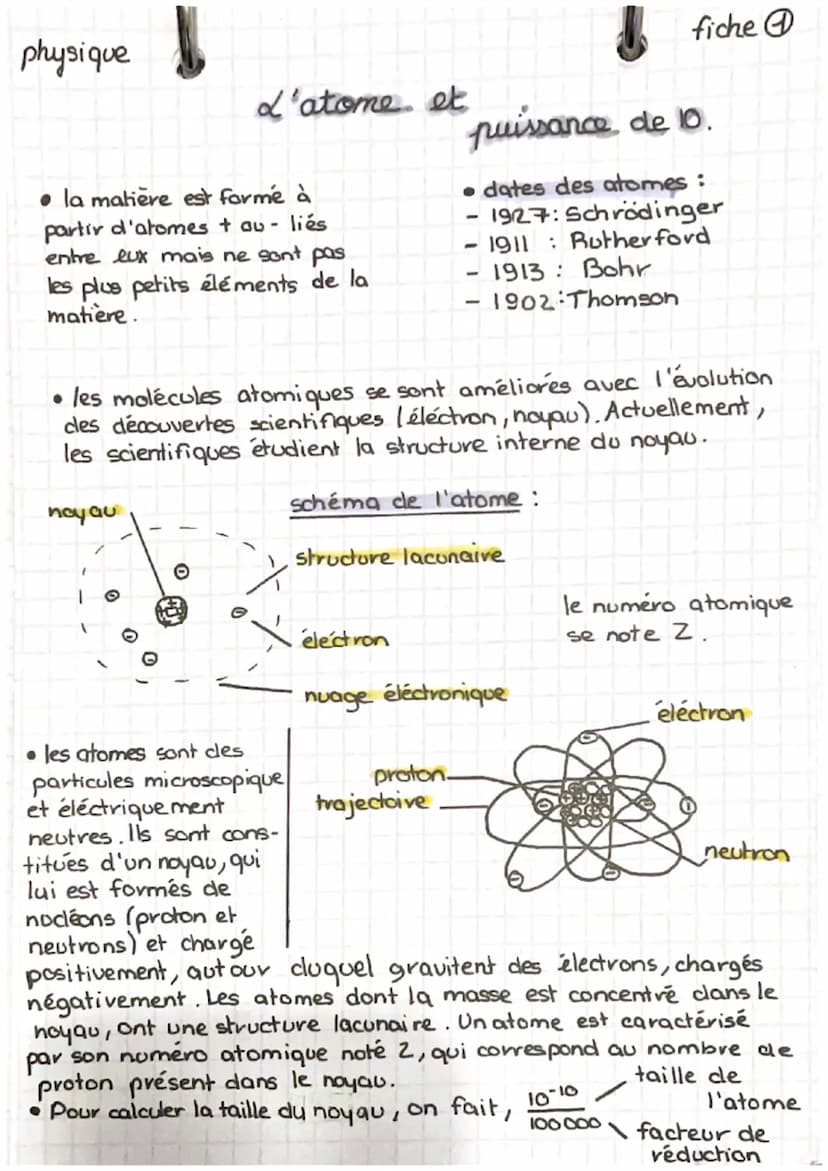 physique
fiche ①
L'atome et
puissance de 10.
• la matière est formé à
partir d'atomes + ou - liés
entre eux mais ne sont pas
les plus petits éléments de la
matière.
• dates des atomes :
- 1927: Schrödinger
- 1911 : Rutherford
- 1913 : Bohr
- 1902: Thomson
• les molécules atomiques se sont améliorés avec l'évolution
des découvertes scientifiques (éléctron, noyau). Actuellement,
les scientifiques étudient la structure interne du noyau.
schéma de l'atome :
noyau
structure lacunaire
éléctron
nuage éléctronique
le numéro atomique
se note Z.
éléctron
proton
trajectoire
neutron
• les atomes sont des
particules microscopique
et éléctriquement
neutres. Ils sont cons-
titués d'un noyau, qui
lui est formés de
nucléons (proton et
neutrons) et chargé
positivement, autour duquel gravitent des électrons, chargés
négativement. Les atomes dont la masse est concentré dans le
noyau, ont une structure lacunaire. Un atome est caractérisé
par son numéro atomique noté Z, qui correspond au nombre de
proton présent dans le noyau.
• Pour calculer la taille du noyau, on fait, 10⁻¹⁰ / 100 000
taille de
l'atome
facteur de
réduction